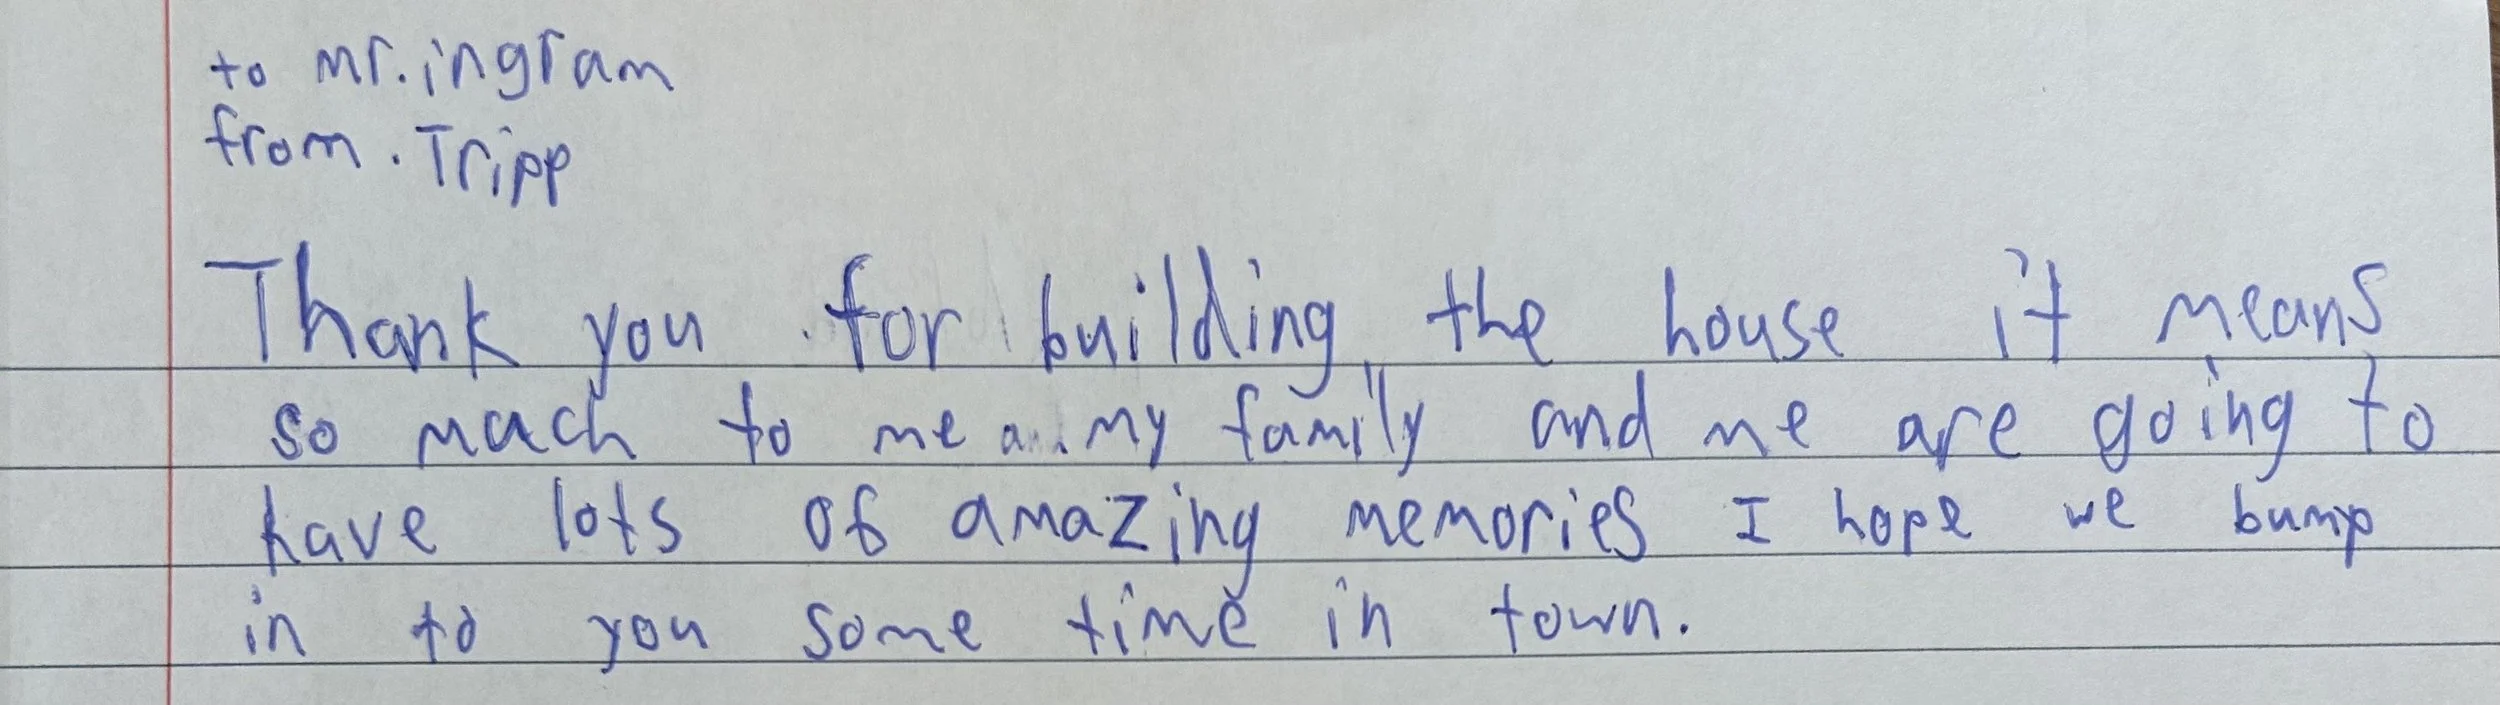 to Mr. ingram
from. Tripp
Thank you for building the house it means
so much to me my family and me are going to
have lots of amazing memories I hope we bump
in to you some time in town.